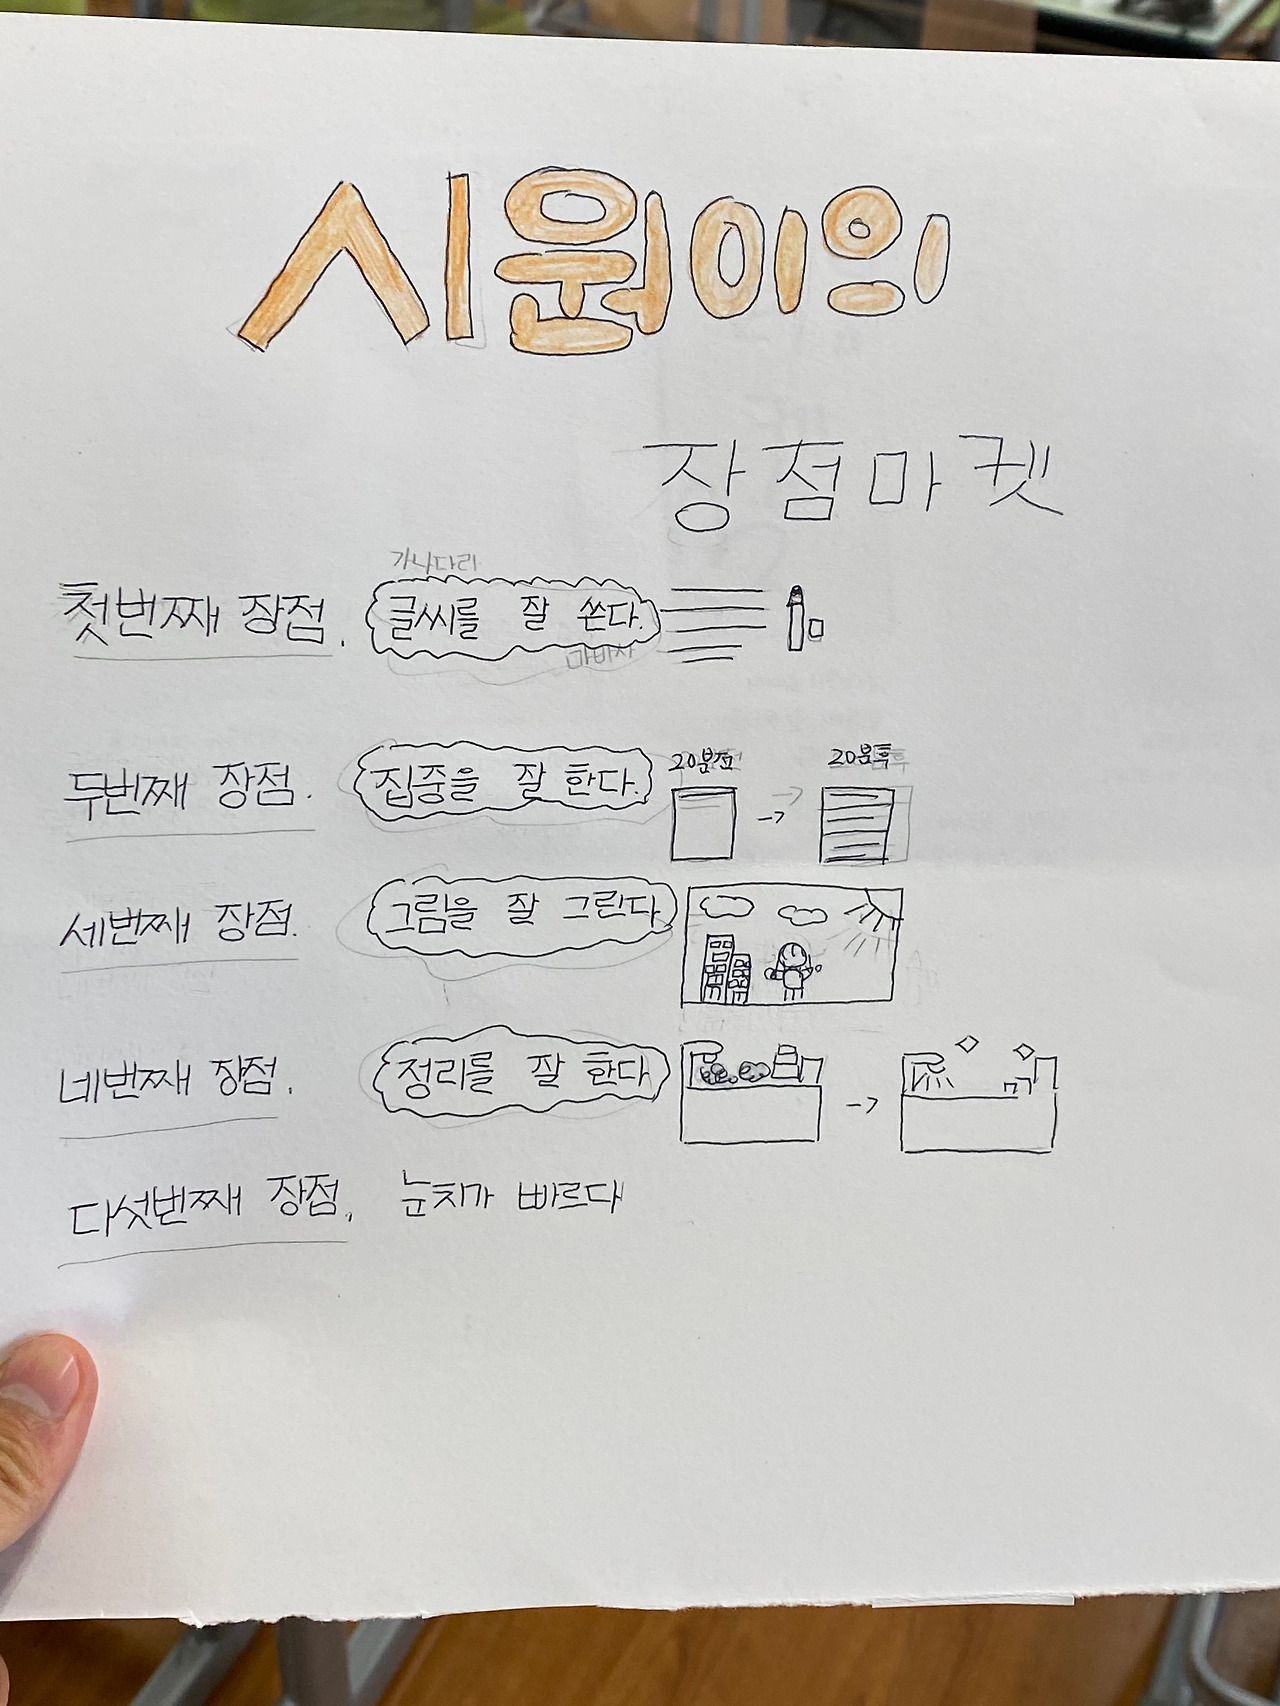 시원이의
장점마켓
가나다라
첫번째 장점. 글씨를 잘 쓴다.
마바사
20분전 20분후
두번째 장점. 집중을 잘 한다.
세번째 장점. 그림을 잘 그린다
네번째 장점. 정리를 잘 한다
다섯번째 장점. 눈치가 빠르다